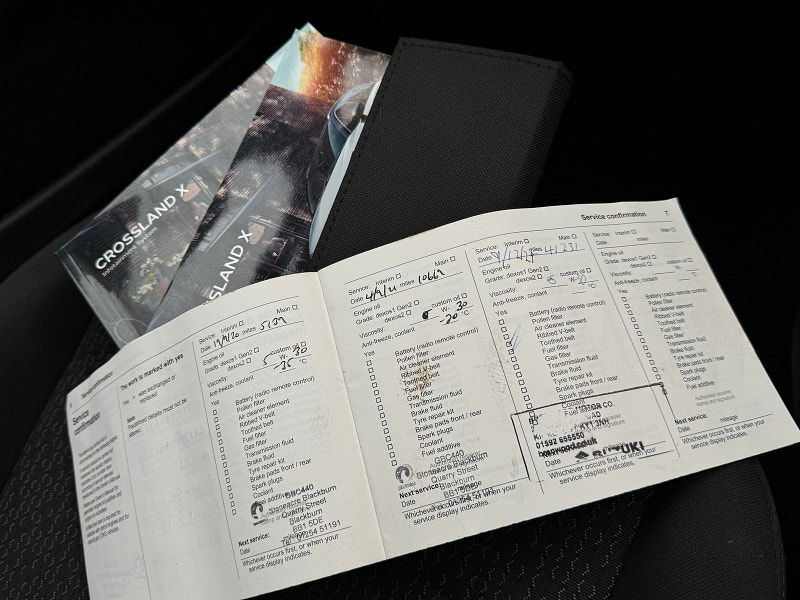 CROSSLAND X
Infotainment System
LAND X
Service confirmation
Service confirmation
The work is marked with yes
Yes = was exchanged or replaced
Note
Predefined details must not be altered.
Service: Interim Main
Date miles 5137
Engine oil
Grade: dexos1 Gen2 custom oil
dexos2
Viscosity: 5 W- 30
Anti-freeze, coolant -35 °C
Yes
Battery (radio remote control)
Pollen filter
Air cleaner element
Ribbed V-belt
Toothed belt
Fuel filter
Gas filter
Transmission fluid
Brake fluid
Tyre repair kit
Brake pads front / rear
Spark plugs
Coolant
Fuel additive
GBC440
Stoneacre Blackburn
Quarry Street
Blackburn
BB1 5DE
Tel: 01254 51191
Next service:
Date
Whichever occurs first, or when your
service display indicates.
Service: Interim Main
Date 4/9/21 miles
Engine oil
Grade: dexos1 Gen2 custom oil
dexos2
Viscosity: W- 30
Anti-freeze, coolant -20 °C
Yes
Battery (radio remote control)
Pollen filter
Air cleaner element
Ribbed V-belt
Toothed belt
Fuel filter
Gas filter
Transmission fluid
Brake fluid
Tyre repair kit
Brake pads front / rear
Spark plugs
Coolant
Fuel additive
GBC440
Stoneacre Blackburn
Quarry Street
Blackburn
Next service:
Date
Whichever occurs first, or when your
service display indicates.
Service confirmation 7
Service: Interim Main
Date miles 41231
Engine oil
Grade: dexos1 Gen2 custom oil
dexos2
Viscosity: W-
Anti-freeze, coolant °C
Yes
Battery (radio remote control)
Pollen filter
Air cleaner element
Ribbed V-belt
Toothed belt
Fuel filter
Gas filter
Transmission fluid
Brake fluid
Tyre repair kit
Brake pads front / rear
Spark plugs
Coolant
Fuel additive
MOTOR CO
KY1 3NH
01592 655550
SUZUKI
Next service:
Date
Whichever occurs first, or when your
service display indicates.
Service: Interim Main
Date miles
Engine oil
Grade: dexos1 Gen2 custom oil
dexos2
Viscosity: W-
Anti-freeze, coolant °C
Yes
Battery (radio remote control)
Pollen filter
Air cleaner element
Ribbed V-belt
Toothed belt
Fuel filter
Gas filter
Transmission fluid
Brake fluid
Tyre repair kit
Brake pads front / rear
Spark plugs
Coolant
Fuel additive
Next service:
Date mileage
Whichever occurs first, or when your
service display indicates.